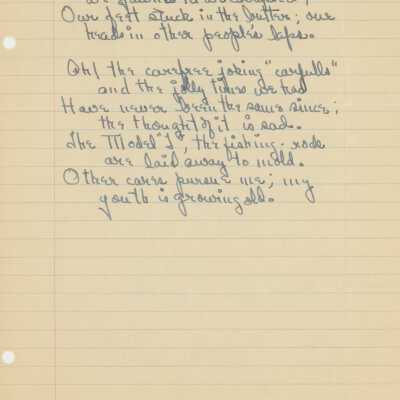 Our feet stuck in the butter; our
heads in other people's laps.
Oh! the carefree joking "carfulls"
and the jolly times we had
Have never been the same since;
the thought of it is sad.
The Model "T", the fishing-rods
are laid away to mold.
Other cares pursue me; my
youth is growing old.